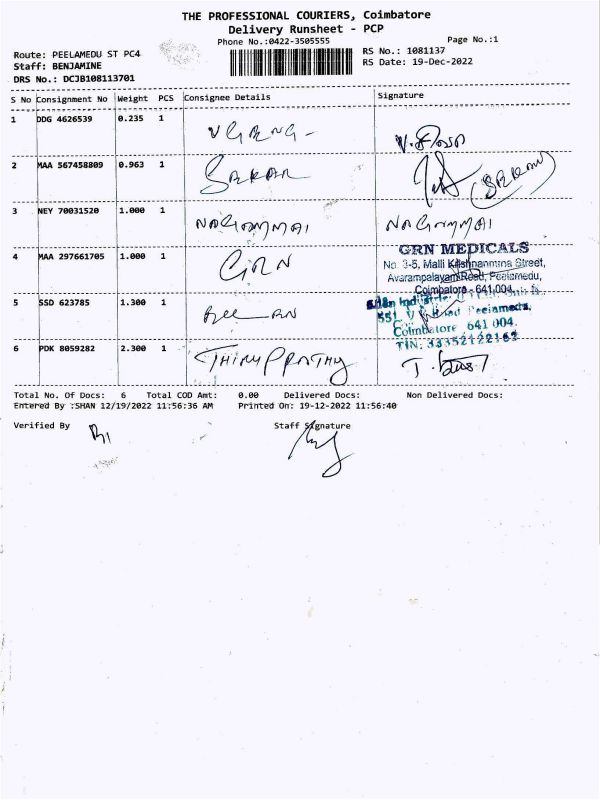 THE PROFESSIONAL COURIERS, Coimbatore
Delivery Runsheet - PCP
Phone No.:0422-3505555 Page No.:1
Route: PEELAMEDU ST PC4 RS No.: 1081137
Staff: BENJAMINE RS Date: 19-Dec-2022
DRS No.: DCJB108113701
S No Consignment No Weight PCS Consignee Details Signature
1 DDG 4626539 0.235 1
2 MAA 567458809 0.963 1
3 NEY 70031520 1.000 1 NAGAMMAI NAGAMMAI
4 MAA 297661705 1.000 1 GRN
GRN MEDICALS
No. 3-5, Malli Krishnamma Street,
Avarampalayam Road, Peelamedu,
Coimbatore - 641 004.
5 SSD 623785 1.300 1
Road Peelamedu,
Coimbatore 641 004.
TIN: 33352122162
6 PDK 8059282 2.300 1
Total No. Of Docs: 6 Total COD Amt: 0.00 Delivered Docs: Non Delivered Docs:
Entered By :SHAN 12/19/2022 11:56:36 AM Printed On: 19-12-2022 11:56:40
Verified By Staff Signature